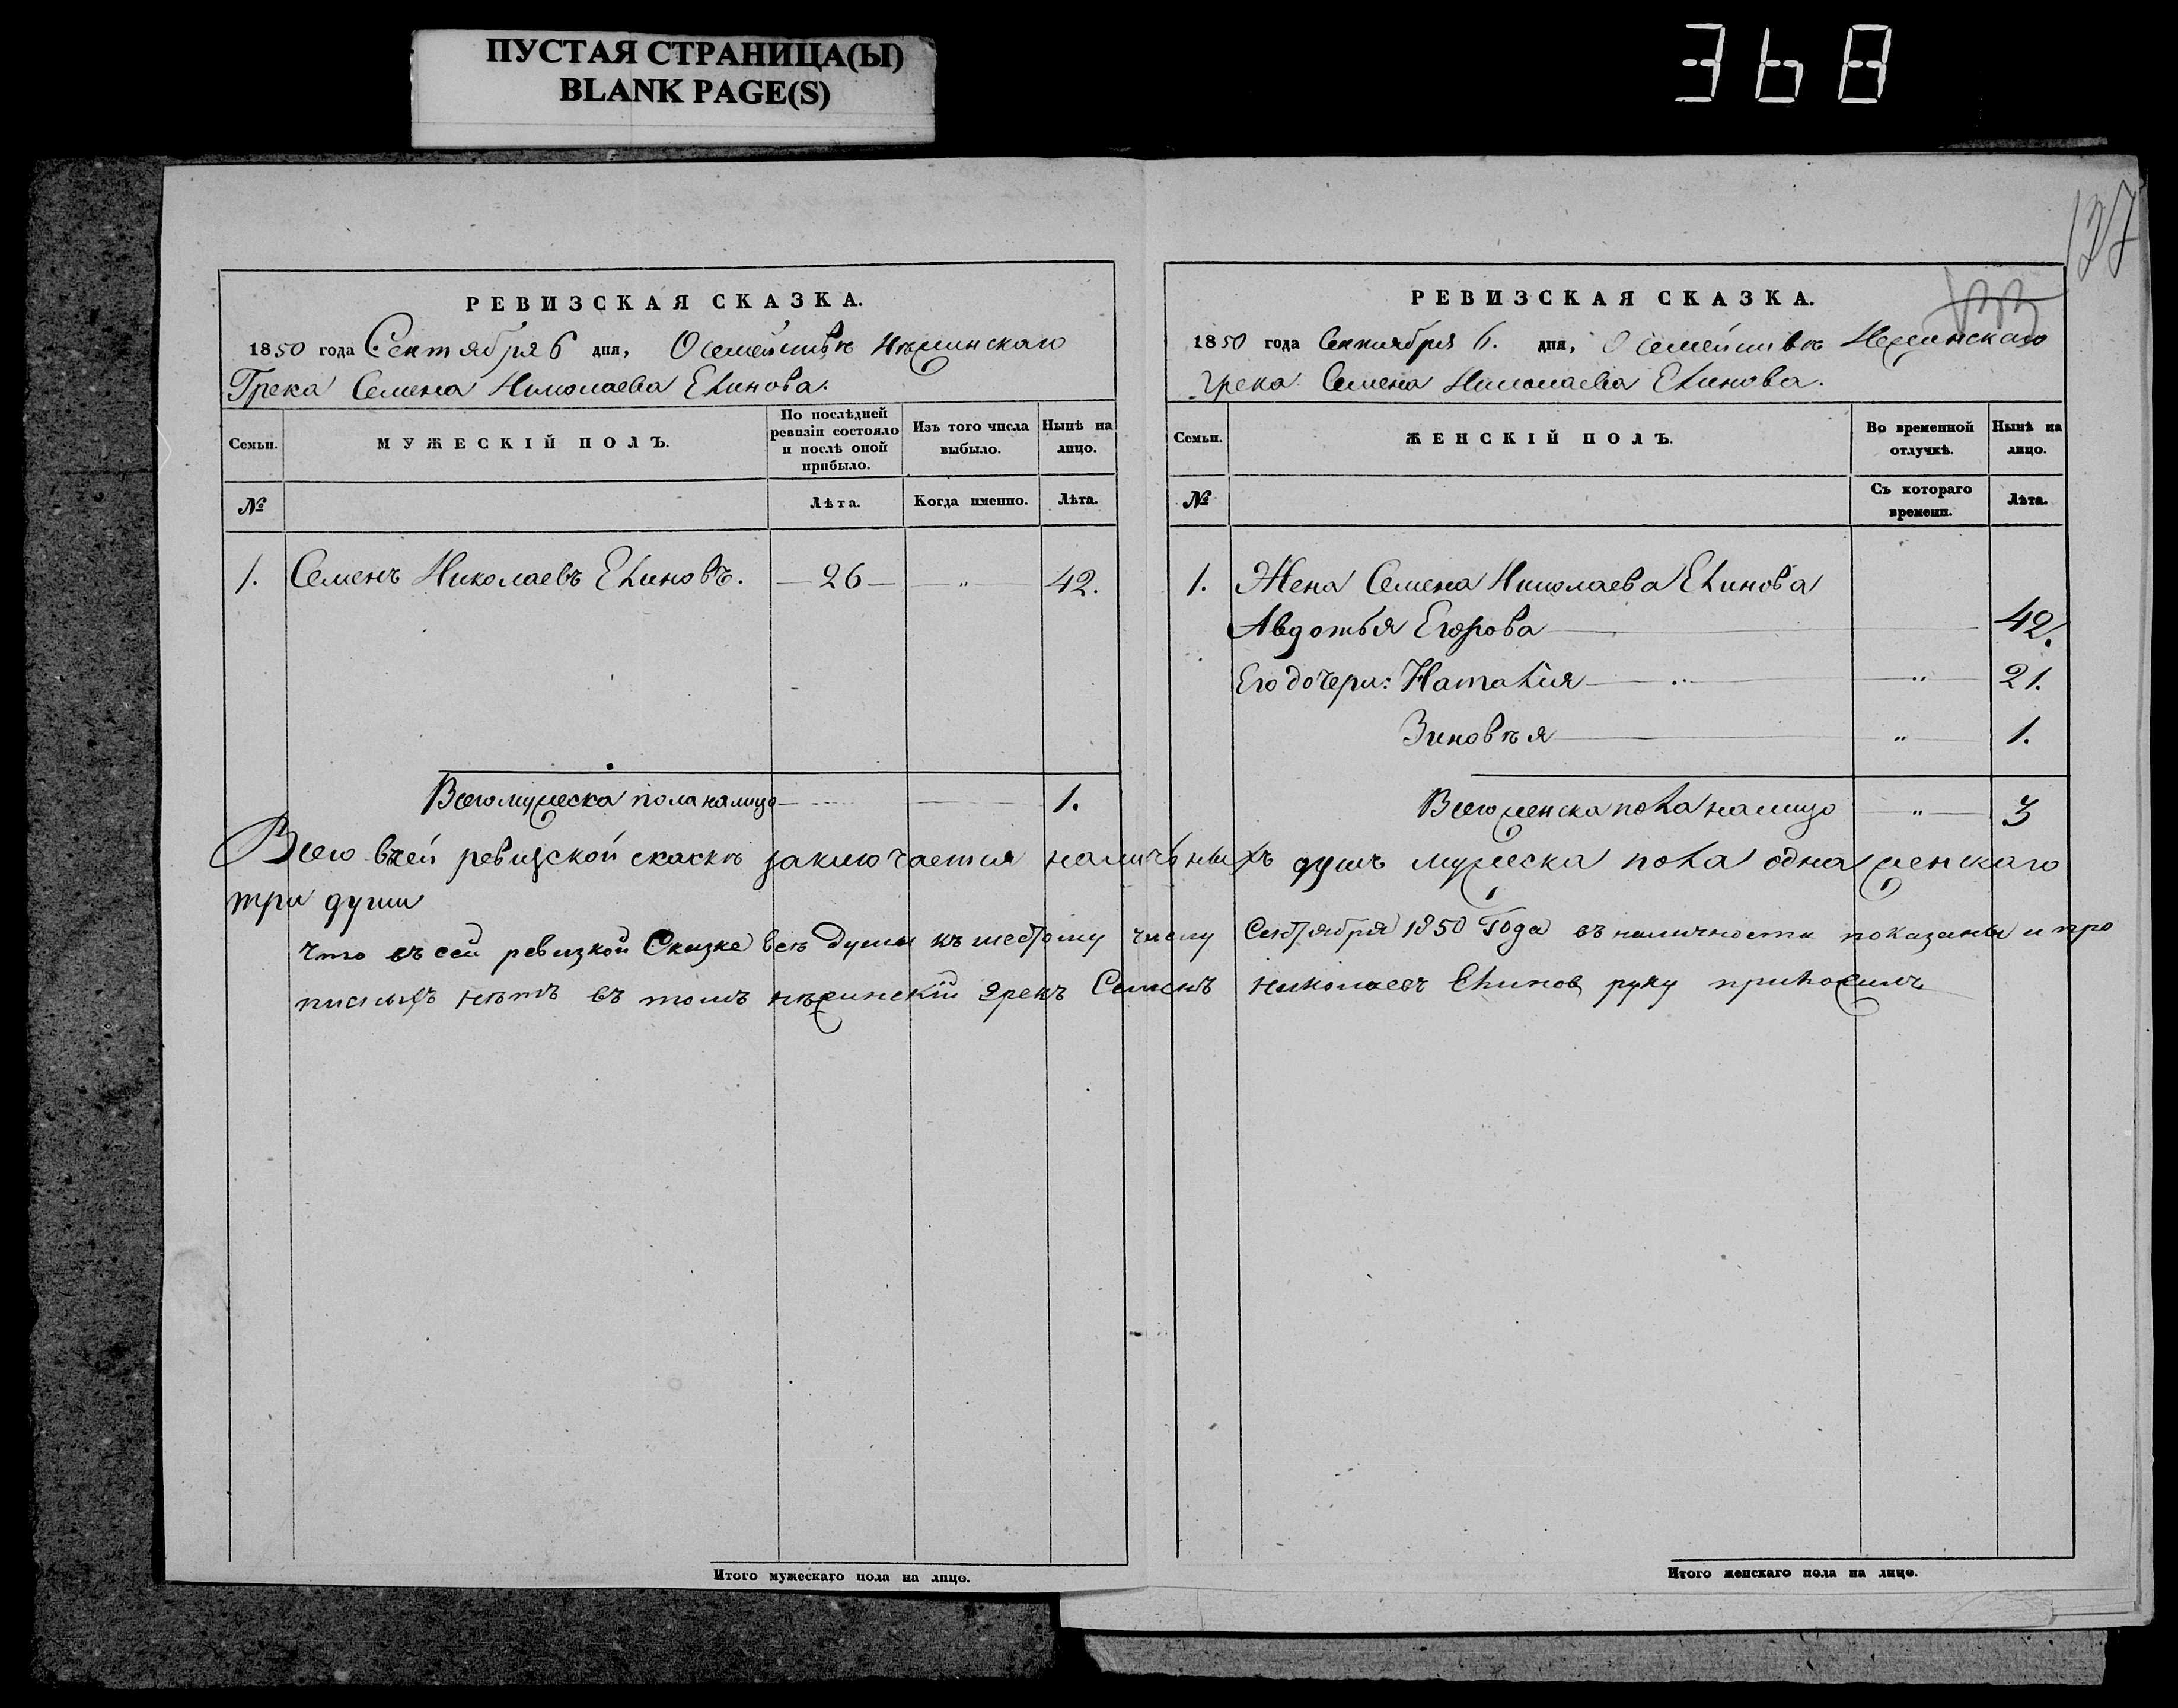 ПУСТАЯ СТРАНИЦА(Ы)
BLANK PAGE(S)
368
127
РЕВИЗСКАЯ СКАЗКА.
1850 года Сентября 6 дня, О семействѣ Нѣжинскаго
Грека Семена Николаева Елинова.
Семьи.
МУЖЕСКІЙ ПОЛЪ.
По послѣдней ревизіи состояло и послѣ оной прибыло.
Изъ того числа выбыло.
Нынѣ на лицо.
№
Лѣта.
Когда именно.
Лѣта.
1. Семенъ Николаевъ Елиновъ. — 26 — „ — 42.
Всего мужеска пола налицо — 1.
РЕВИЗСКАЯ СКАЗКА.
1850 года Сентября 6. дня, О семействѣ Нежинскаго
грека Семена Николаева Елинова.
Семьи.
ЖЕНСКІЙ ПОЛЪ.
Во временной отлучкѣ.
Нынѣ на лицо.
№
Съ котораго времени.
Лѣта.
1. Жена Семена Николаева Елинова
Авдотья Егорова — 42.
Его дочери: Наталия — „ — 21.
Зиновѣя — „ — 1.
Всего женска пола налицо — „ — 3
Всего въсей ревизской скаскѣ заключается наличныхъ душъ мужеска пола одна женскаго
три души
Что въ сей ревизкой Сказке всѣ души къ шестому числу Сентября 1850 Года въ наличности показаны и про
писныхъ нѣтъ въ томъ нѣжинскій грекъ Семенъ Николаевъ Елинов руку приложилъ
Итого мужескаго пола на лицо.
Итого женскаго пола на лицо.